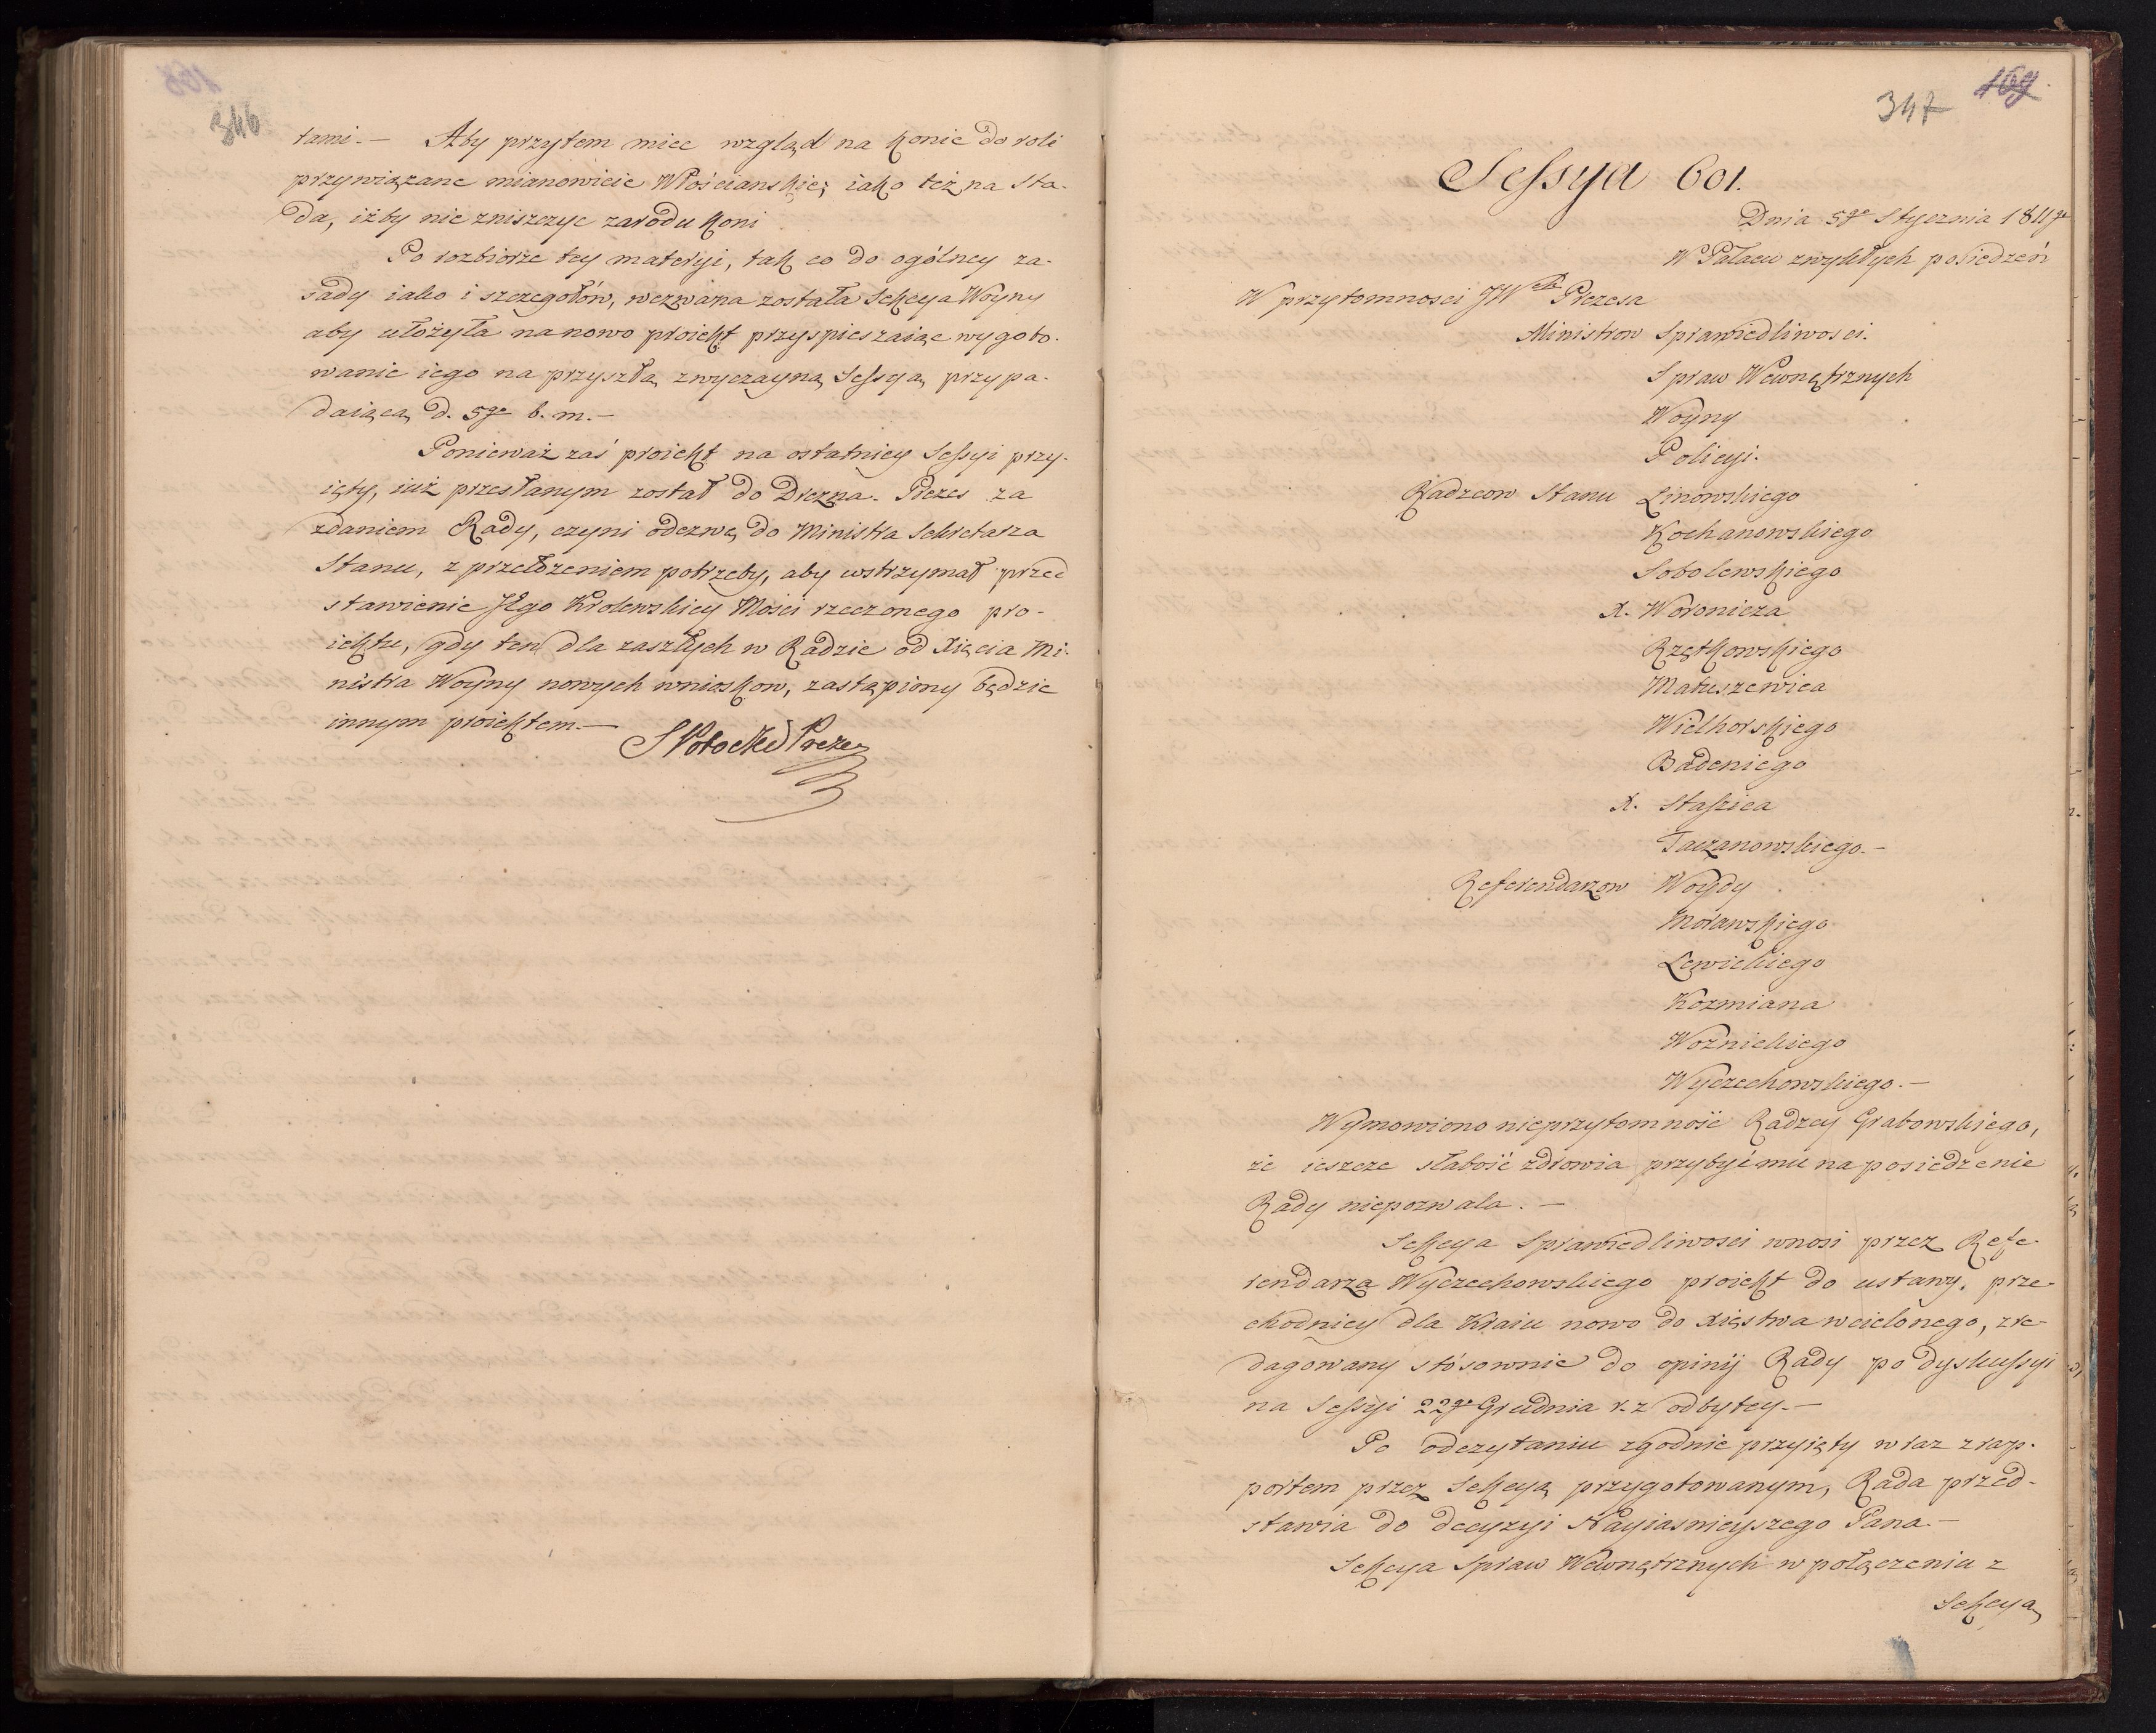 346
tami.— Aby przytem miec wzgląd na konie do roli
przywiązane mianowicie Włościanskie; iako też na sta-
da, iżby nie zniszczyc zarodu koni
Po rozbiorze tey materyi, tak co do ogólney za-
sady iako i szczegołów, wezwana została Sekcya Woyny
aby ułożyła nanowo proiekt przyspieszaiąc wygoto-
wanie iego na przyszłą zwyczayną Sessyą przypa-
daiącą d. 5go b. m.—
Ponieważ zaś proiekt na ostatniey Sessyi przy-
ięty, iuż przesłanym został do Drezna. Prezes za
zdaniem Rady, czyni odezwę do Ministra Sekretarza
Stanu, z przełożeniem potrzeby, aby wstrzymał przed
stawienie JEgo Krolewskiey Mości rzeczonego pro-
iektu, gdy ten dla zaszłych w Radzie od Xięcia Mi-
nistra Woyny nowych wnioskow, zastąpiony będzie
innym proiektem.—
S Potocki Prezes
347 169.
Sessya 601.
Dnia 5go Stycznia 1811go
W Pałacu zwykłych posiedzeń
W przytomnosci JW Prezesa
Ministrow Sprawiedliwosci.
Spraw Wewnętrznych
Woyny
Policyi.
Radzcow Stanu Linowskiego
Kochanowskiego
Sobolewskiego
X. Woronicza
Rzętkowskiego
Matuszewica
Wielhorskiego
Badeniego
X. Staszica
Taczanowskiego.—
Referendarzow Woydy
Morawskiego
Lewickiego
Kozmiana
Woznickiego
Wyczechowskiego.—
Wymowiono nieprzytomność Radzcy Grabowskiego,
że ieszcze słabość zdrowia przybyć mu na posiedzenie
Rady niepozwala.—
Sekcya Sprawiedliwosci wnosi przez Refe-
rendarza Wyczechowskiego proiekt do ustawy, prze-
chodniey dla Kraiu nowo do Xięstwa wcielonego, zre-
dagowany stósownie do opinij Rady po dyskussyi
na Sessyi 22go Grudnia r. z. odbytey.—
Po odczytaniu zgodnie przyięty wraz z rap-
portem przez Sekcyą przygotowanym, Rada przed-
stawia do decyzyi Nayiasnieyszego Pana.—
Sekcya Spraw Wewnętrznych w połączeniu z
Sekcyą